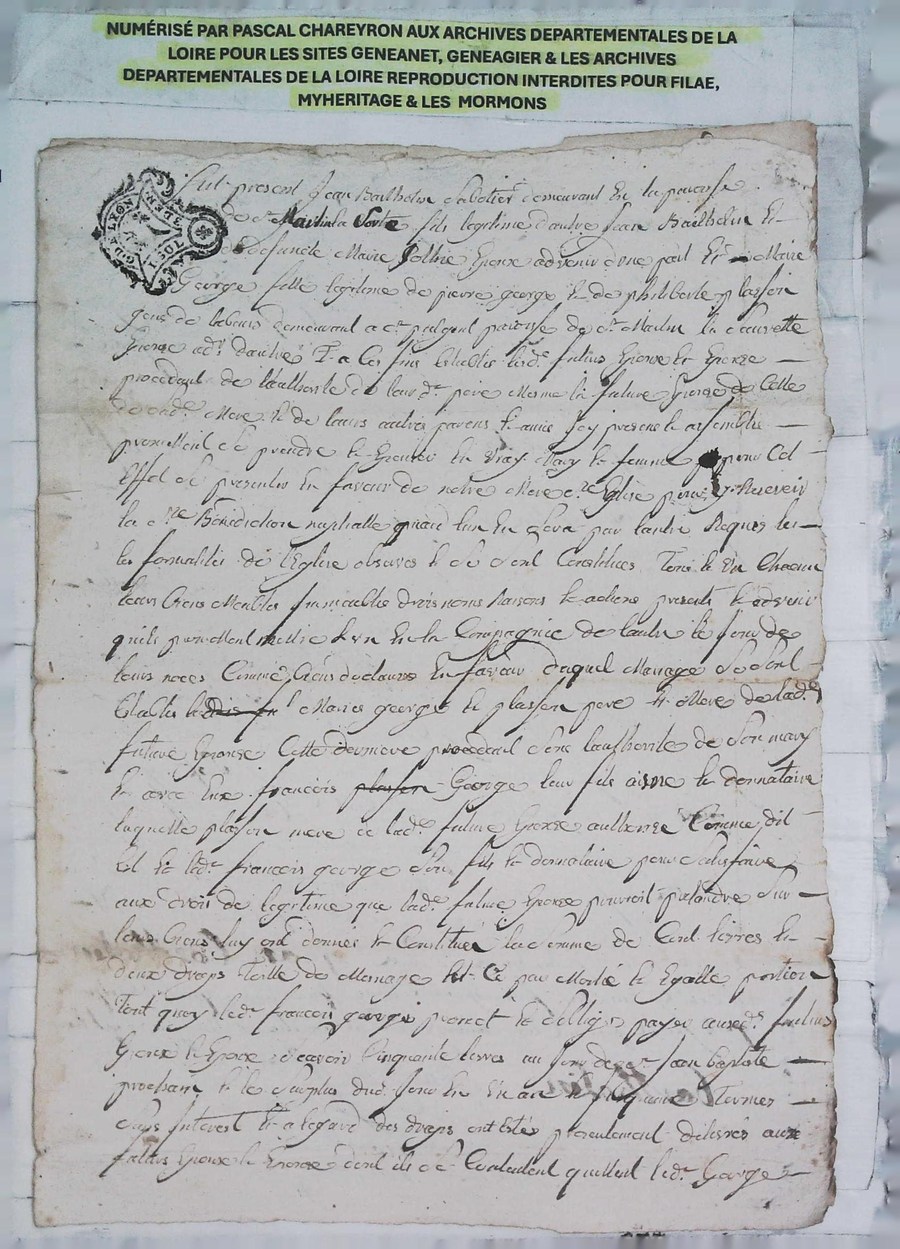 NUMÉRISÉ PAR PASCAL CHAREYRON AUX ARCHIVES DEPARTEMENTALES DE LA
LOIRE POUR LES SITES GENEANET, GENEAGIER & LES ARCHIVES
DEPARTEMENTALES DE LA LOIRE REPRODUCTION INTERDITES POUR FILAE,
MYHERITAGE & LES MORMONS
Fut present Jean demeurant En la paroisse
de St Martin la fils legitime d'autre Jean Et
Marie Epoux advenir d'une part Et Marie
George fille legitime de pierre george Et de philiberte plasson
gens de labeur demeurant a St paroisse de St Martin la
Epouse d'autre Et a Ces fins lesd. futurs Epoux Et Epouse
procedant de l'authorité de leurd. pere Mesme la future Epouse de Celle
de sad. Mere Et de leurs autres parens Et amis Icy presens Et assemblés
promettent de prendre Et Epouser En vray Mary Et femme pour Cet
Effet se presenter En faveur de notre Mere Ste Eglise pour y Recevoir
la Bénédiction nuptialle quand l'un En sera par l'autre Requis les
les formalités de l'Eglise observés Et se sont Constitués Tous Et Un Chacun
leurs biens Meubles Immeubles droits noms Raisons Et actions presents Et advenir
quils promettent mettre En la Compagnie de l'autre le jour de
leurs noces Comme biens dotaux En faveur duquel Mariage se sont
Establis Mariés george Et plasson pere Et Mere de lad.
future Epouse Cette derniere procedant de l'authorité de son mary
Et avec Eux françois plasson George leur fils aisné Et donnataire
laquelle plasson mere de lad. future Epouse authorisé Comme dit
Est Et led. françois george son fils Et donnataire pour satisfaire
aux droit de legitime que lad. future Epouse pourroit pretendre Sur
leurs biens luy ont donnés Et Constitué la somme de Cent livres Et
deux draps toille de Menage Et Ce par Moitié Et Egalle portion
Tout quoy led. françois george promet Et s'oblige payer auxd. futurs
Epoux Et Epouse sçavoir Cinquante livres au jour de St Jean baptiste
prochain Et le Surplus dud. jour En Un an termes
sans Interest Et a l'egard des draps ont Estés presentement délivrés aux
futurs Epoux Et Epouse dont ils se Contentent quittent led. George